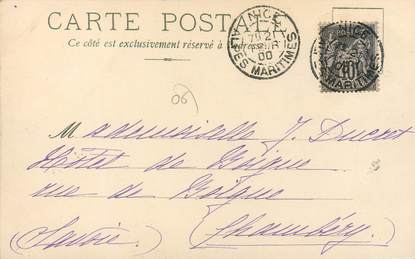 CARTE POSTALE
Ce côté est exclusivement réservé à l'adresse
NICE
ALPES MARITIMES
00
NICE
MARITIMES
06
Mademoiselle J. Ducret
Hôtel de Boigne
rue de Boigne
Chambéry.
(Savoie)